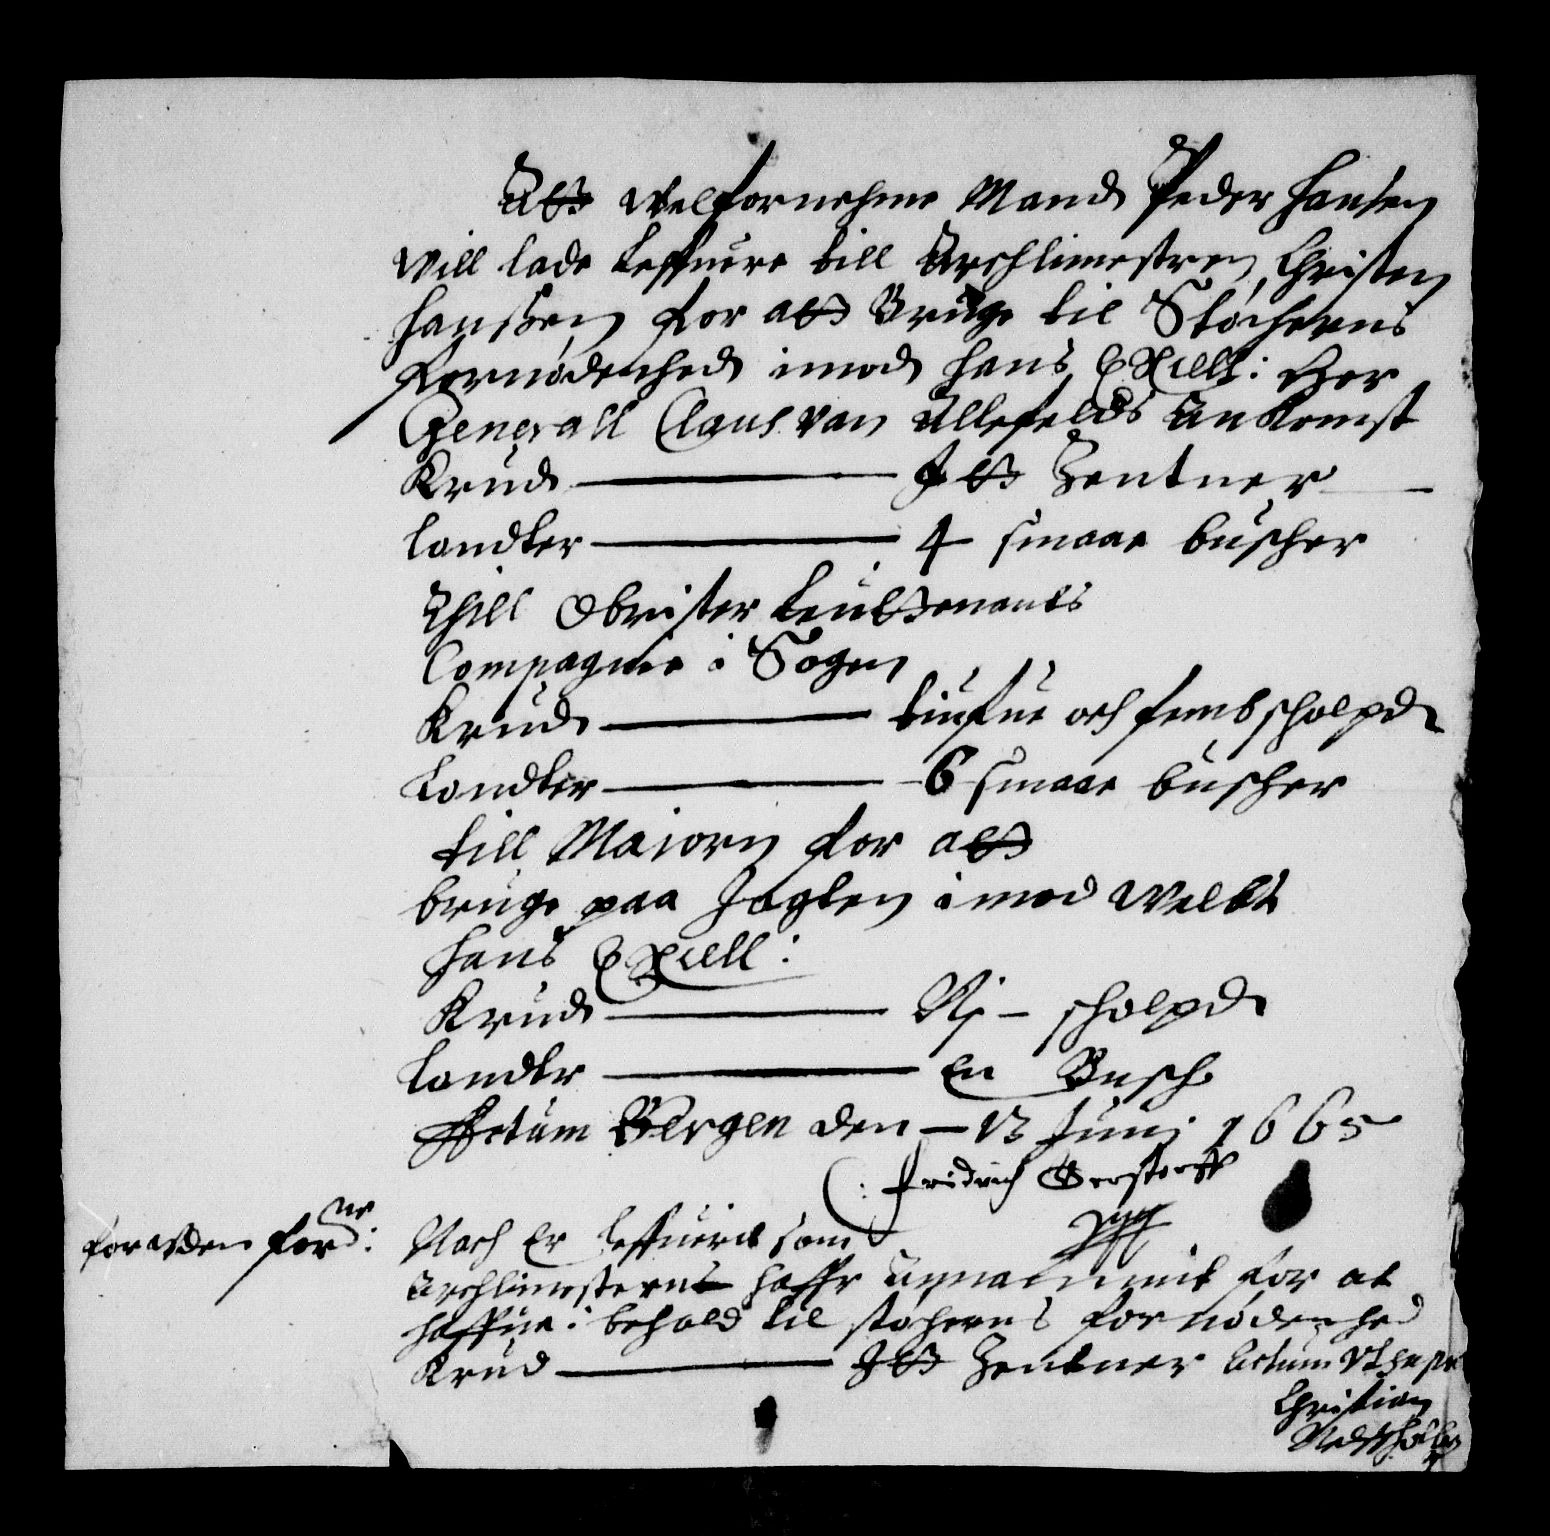 Att Welfornehme Mand Peder Hansen
Will lade leffuere till Archlimestren Christen
Hanssen for att Bruge til Støcherns
fornødenhed imod Hans Excell: Her
Generall Claus van Allefelds Ankomst
Krud ——— Itt Zentner
londter ——— 4 smaae buscher
Thill Obrister leutttenants
Compagnie i Sogen
Krud ——— tiufue och femb scholpd
Londter ——— 6 smaae buscher
till Maiorn for att
bruge paa Jagten imod Welbt
hans Excell:
Krud ——— Nj – scholpd
londtr ——— En Busch
Actum Bergen den – 13 Junj 1665
Fridrich Gerstorff
foruden for ne:
Noch Er leffuerit som
Archlimesterns haffr Annammit for at
haffue i behold til støcherns fornødenhed
Krud ——— Itt Zentner Actum Vt
Christian